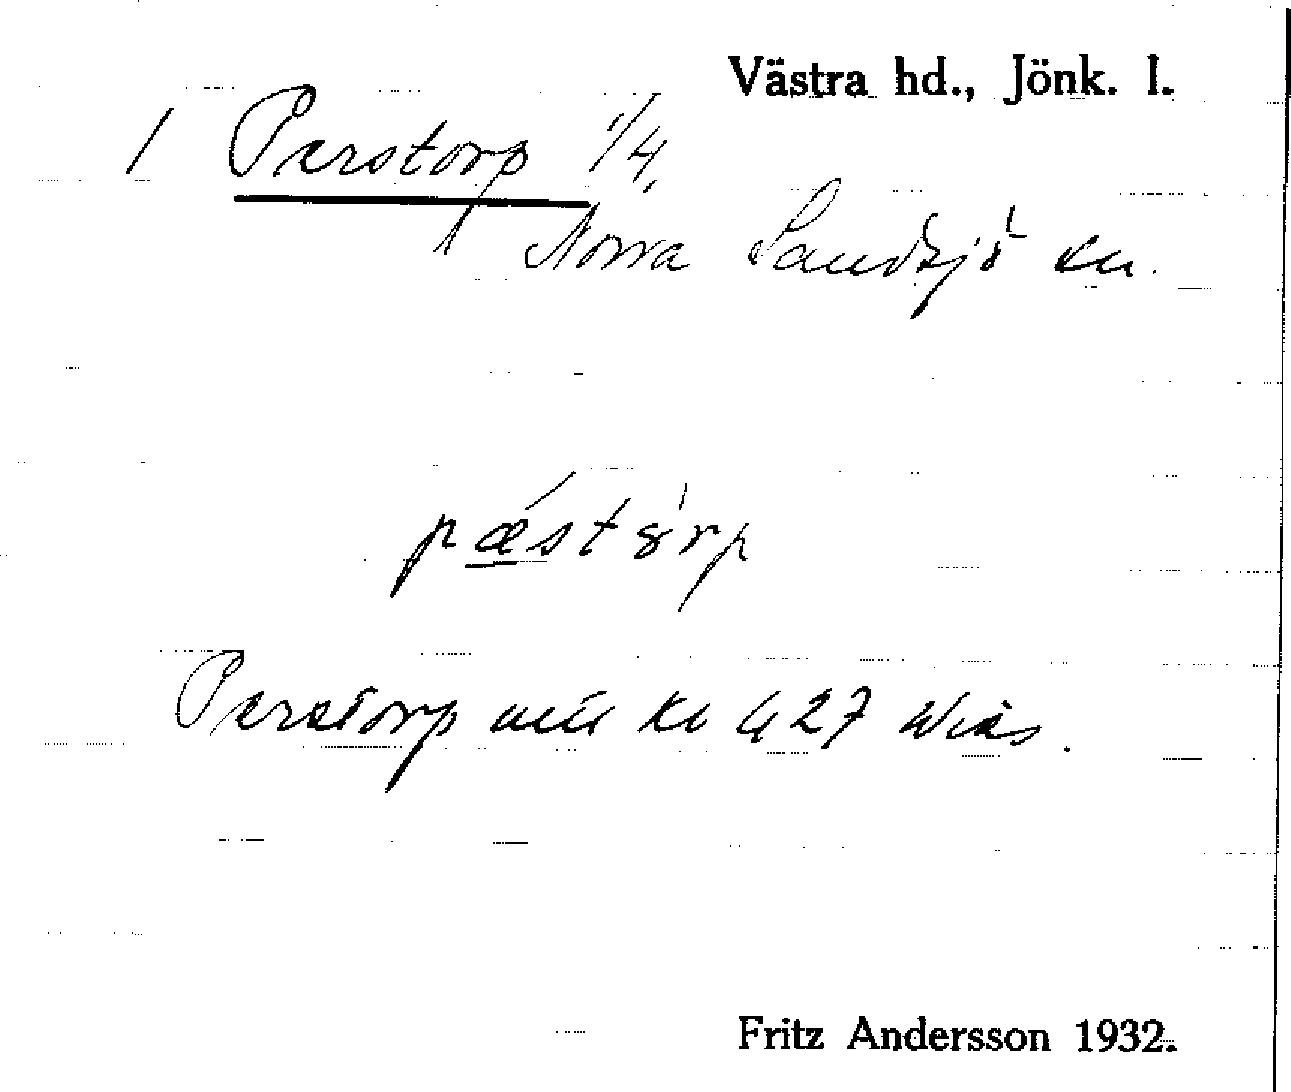 Västra hd., Jönk. l.
1 Perstorp 1/4,
Norra Sandsjö sn.
pǽstórp
Perstorp 427
Fritz Andersson 1932.